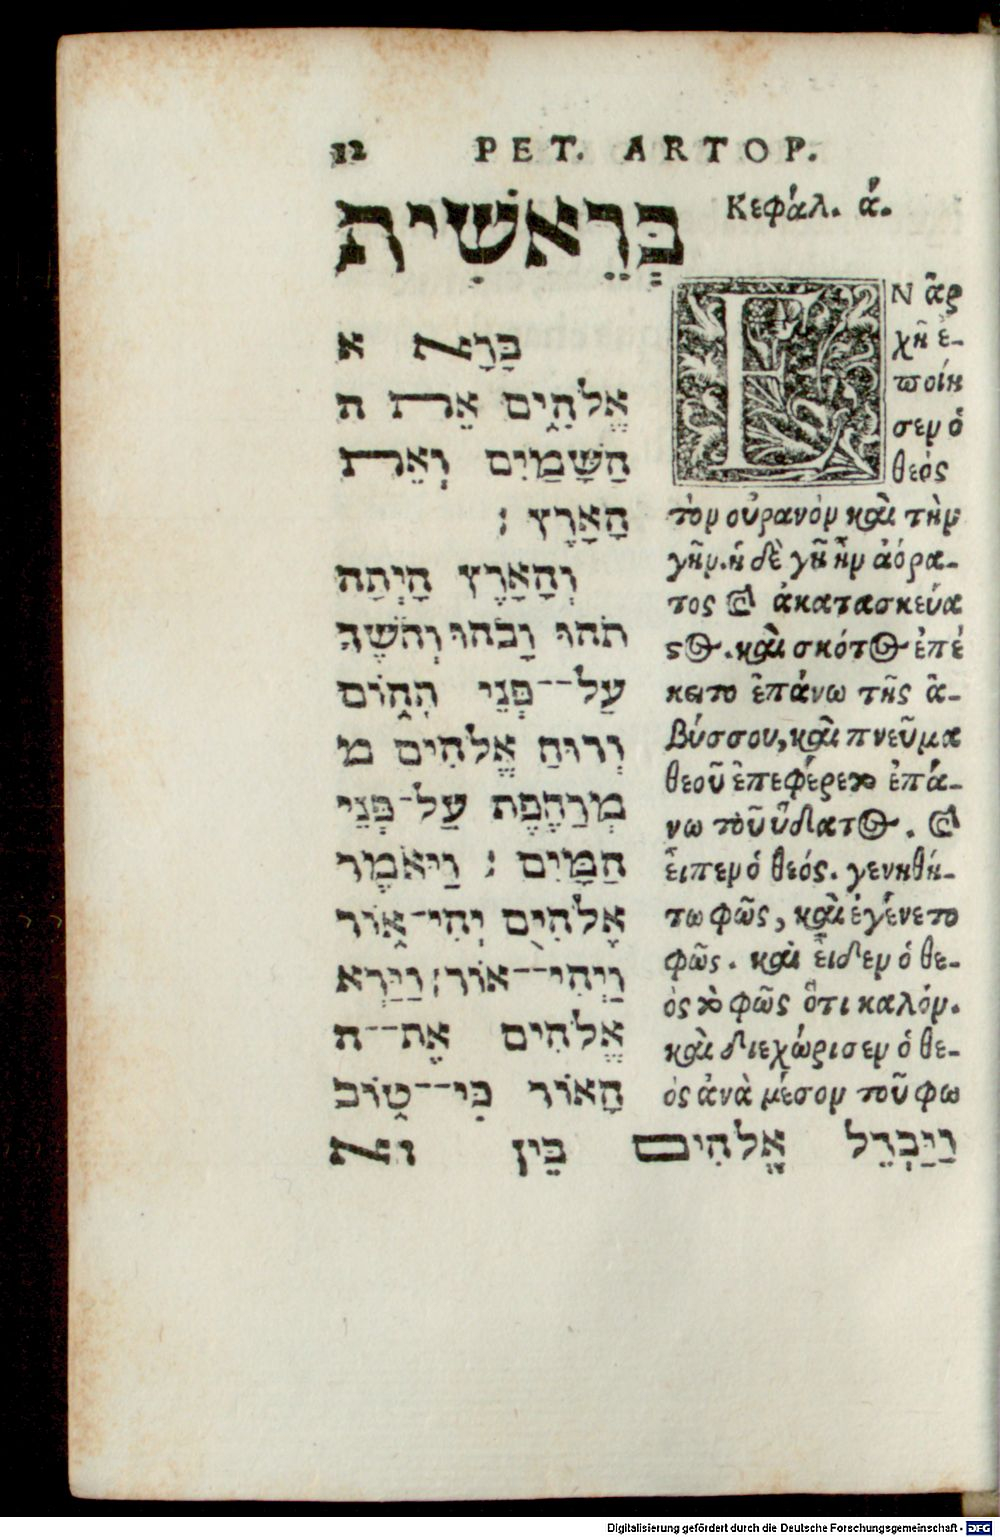 12 PET. ARTOP.
בְּרֵאשִׁית
בָּרָא א
אֱלֹהִים אֵת ה
הַשָּׁמַיִם וְאֵת
הָאָרֶץ :
וְהָאָרֶץ הָיְתָה
תֹהוּ וָבֹהוּ וְחֹשֶׁךְ
עַל־־פְּנֵי תְהוֹם
וְרוּחַ אֱלֹהִים מ
מְרַחֶפֶת עַל־פְּנֵי
הַמָּיִם : וַיֹּאמֶר
אֱלֹהִים יְהִי־אוֹר
וַיְהִי־־אוֹר : וַיַּרְא
אֱלֹהִים אֶת־־ה
הָאוֹר כִּי־־טוֹב
וַיַּבְדֵּל אֱלֹהִים בֵּין וא
Κεφάλ. ά.
ΕΝ ἀρ
χῆ ἐ-
ποίη
σεν ὁ
θεός
τὸν οὐρανὸν καὶ τὴν
γῆν. ἡ δὲ γῆ ἦν ἀόρα-
τος καὶ ἀκατασκεύα
ςος. καὶ σκότος ἐπέ
κειτο ἐπάνω τῆς ἀ-
βύσσου, καὶ πνεῦμα
θεοῦ ἐπεφέρετο ἐπά-
νω τοῦ ὕδατος. καὶ
εἶπεν ὁ θεός. γενηθή-
τω φῶς, καὶ ἐγένετο
φῶς. καὶ εἶδεν ὁ θε-
ὸς τὸ φῶς ὅτι καλόν.
καὶ διεχώρισεν ὁ θε-
ὸς ἀνὰ μέσον τοῦ φω
Digitalisierung gefördert durch die Deutsche Forschungsgemeinschaft - DFG